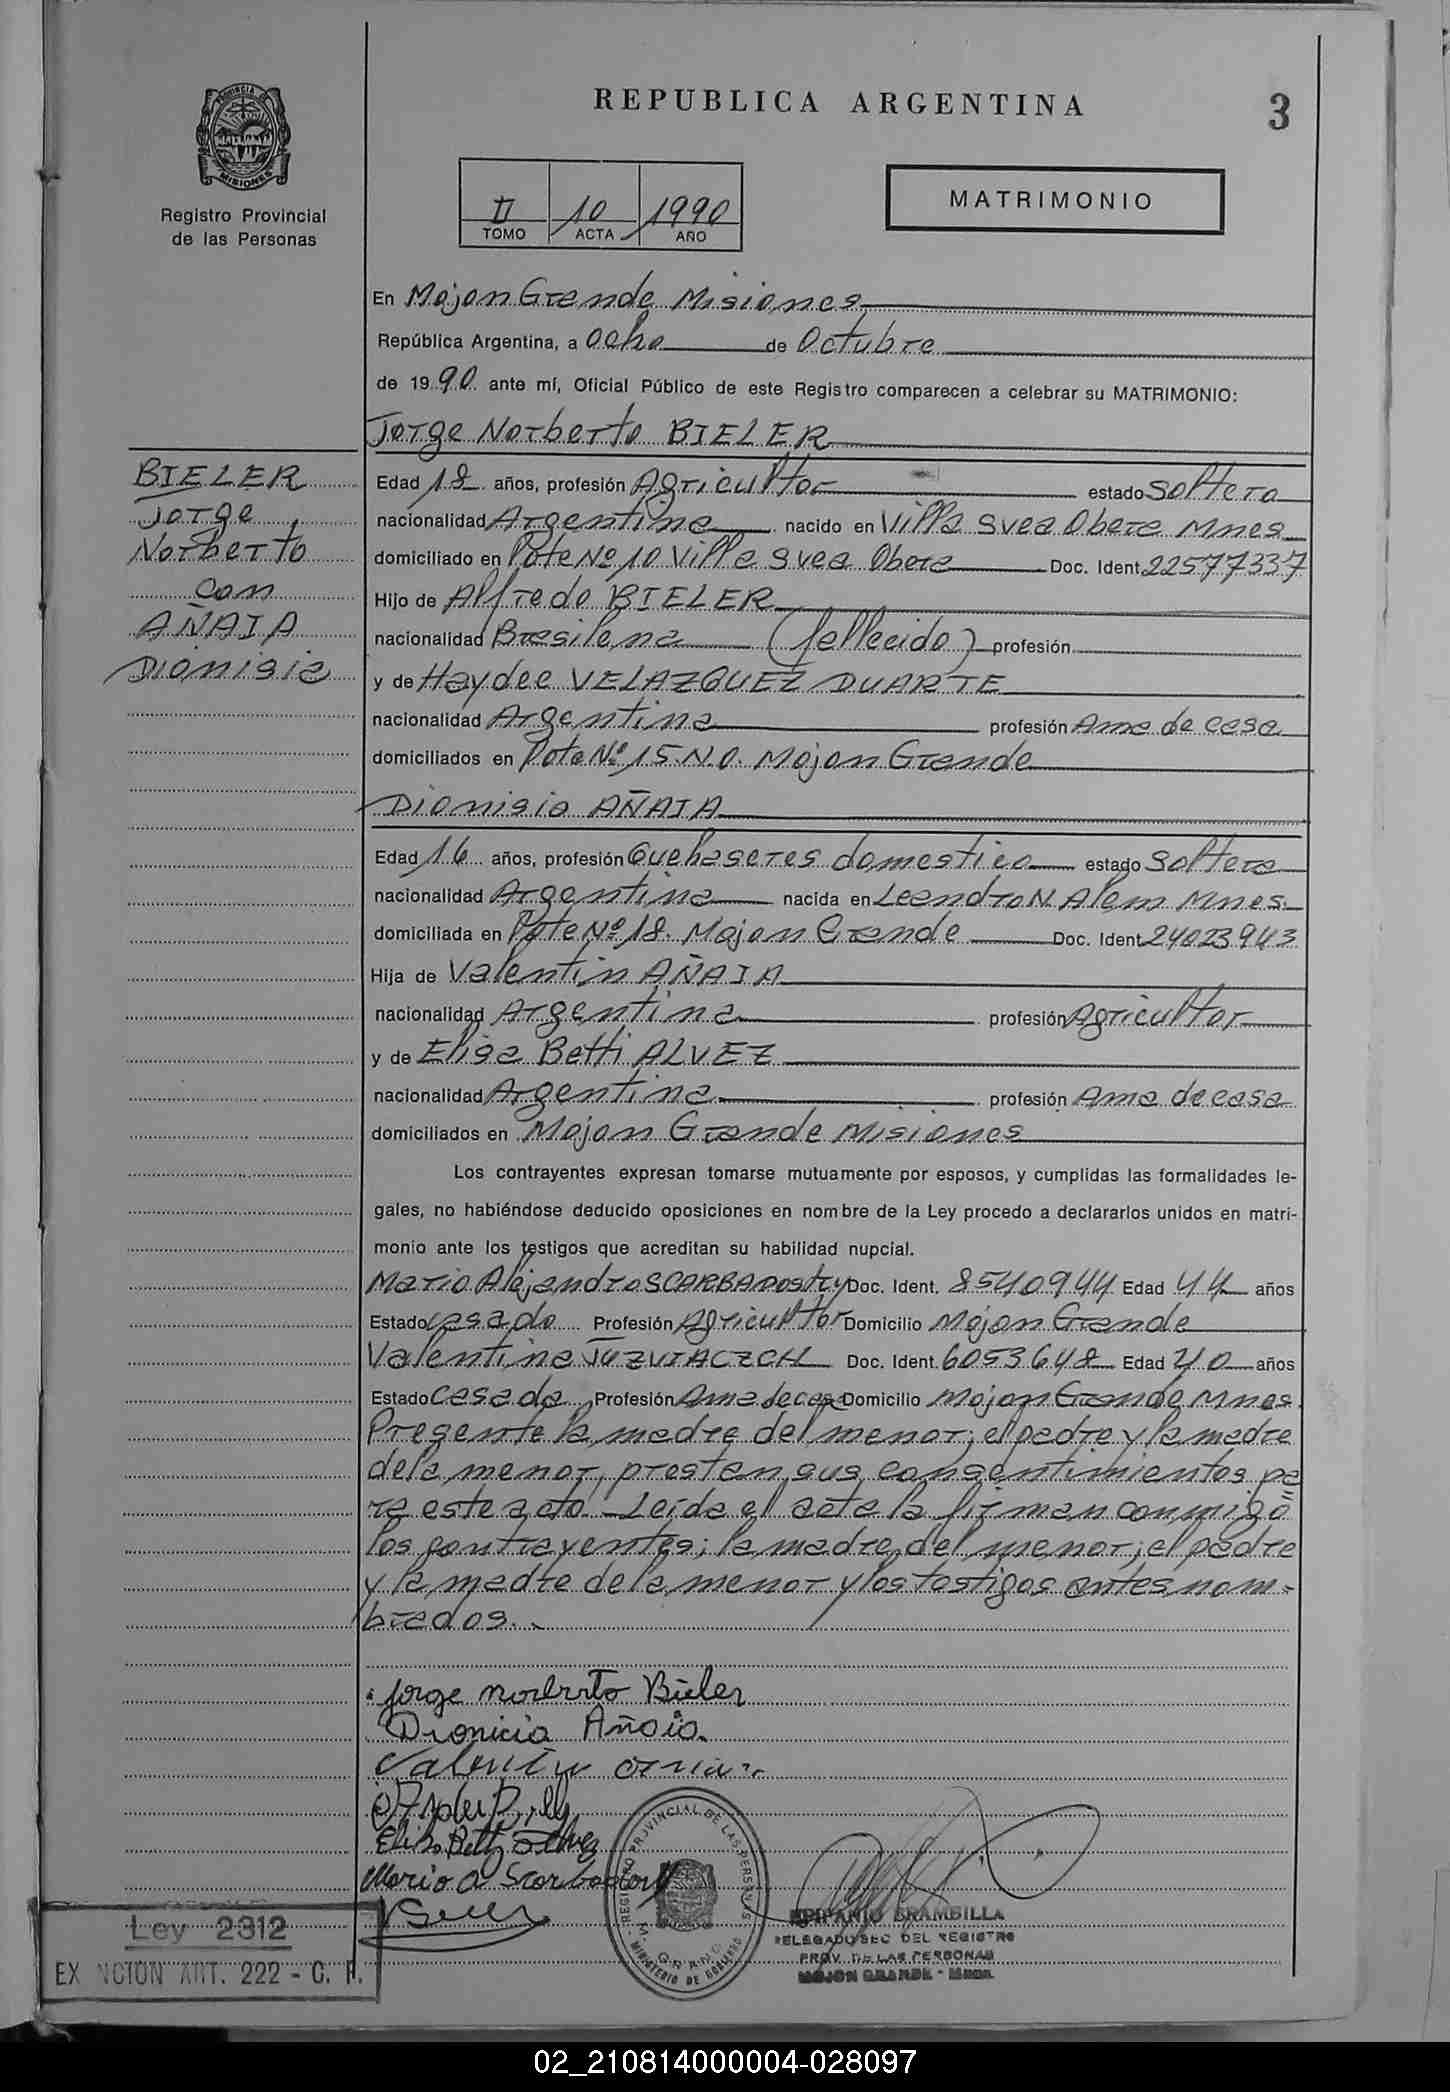 REPUBLICA ARGENTINA
3
PROVINCIA DE
MISIONES
Registro Provincial
de las Personas
II 10 1990
TOMO ACTA AÑO
MATRIMONIO
En Mojon Grande Misiones
República Argentina, a ocho de Octubre
de 1990 ante mí, Oficial Público de este Registro comparecen a celebrar su MATRIMONIO:
Jorge Norberto BIELER
BIELER
Jorge
Norberto
con
AÑAIA
Dionisia
Edad 18 años, profesión Agricultor estado soltero
nacionalidad Argentina nacido en Villa Svea Obera Mnes
domiciliado en Lote Nº 10 Villa Svea Obera Doc. Ident. 22577337
Hijo de Alfredo BIELER
nacionalidad Brasilena (fallecido) profesión
y de Haydee VELAZQUEZ DUARTE
nacionalidad Argentina profesión Ama de casa
domiciliados en Lote Nº 15 N.O. Mojon Grande
Dionisia AÑAIA
Edad 16 años, profesión Quehaseres domestico estado soltera
nacionalidad Argentina nacida en Leandro N. Alem Mnes.
domiciliada en Lote Nº 18. Mojon Grande Doc. Ident. 24023943
Hija de Valentin AÑAIA
nacionalidad Argentina profesión Agricultor
y de Elisa Betti ALVEZ
nacionalidad Argentina profesión Ama de casa
domiciliados en Mojon Grande Misiones
Los contrayentes expresan tomarse mutuamente por esposos, y cumplidas las formalidades le-
gales, no habiéndose deducido oposiciones en nombre de la Ley procedo a declararlos unidos en matri-
monio ante los testigos que acreditan su habilidad nupcial.
Mario Alejandro Doc. Ident. 8540944 Edad 44 años
Estado casado Profesión Agricultor Domicilio Mojon Grande
Valentina Doc. Ident. 6053648 Edad 40 años
Estado casada Profesión Ama de casa Domicilio Mojon Grande Mnes.
Presente la madre del menor; el padre y la madre
de la menor, prestan sus consentimientos pa
ra este acto. Leida el acta la firman conmigo
los contrayentes; la madre del menor; el padre
y la madre de la menor y los testigos antes nom-
brados.
Jorge norberto Bieler
Dionicia Añaia.
Elisa Betty Alvez
Mario A
REGISTRO PROVINCIAL DE LAS PERSONAS
M. GRANDE
MINISTERIO DE GOBIERNO
EPIFANIO BRAMBILLA
DELEGADO SEC DEL REGISTRO
PROV. DE LAS PERSONAS
MOJON GRANDE - Mnes.
Ley 2312
EX NCION ART. 222 - C. F.
02_210814000004-028097